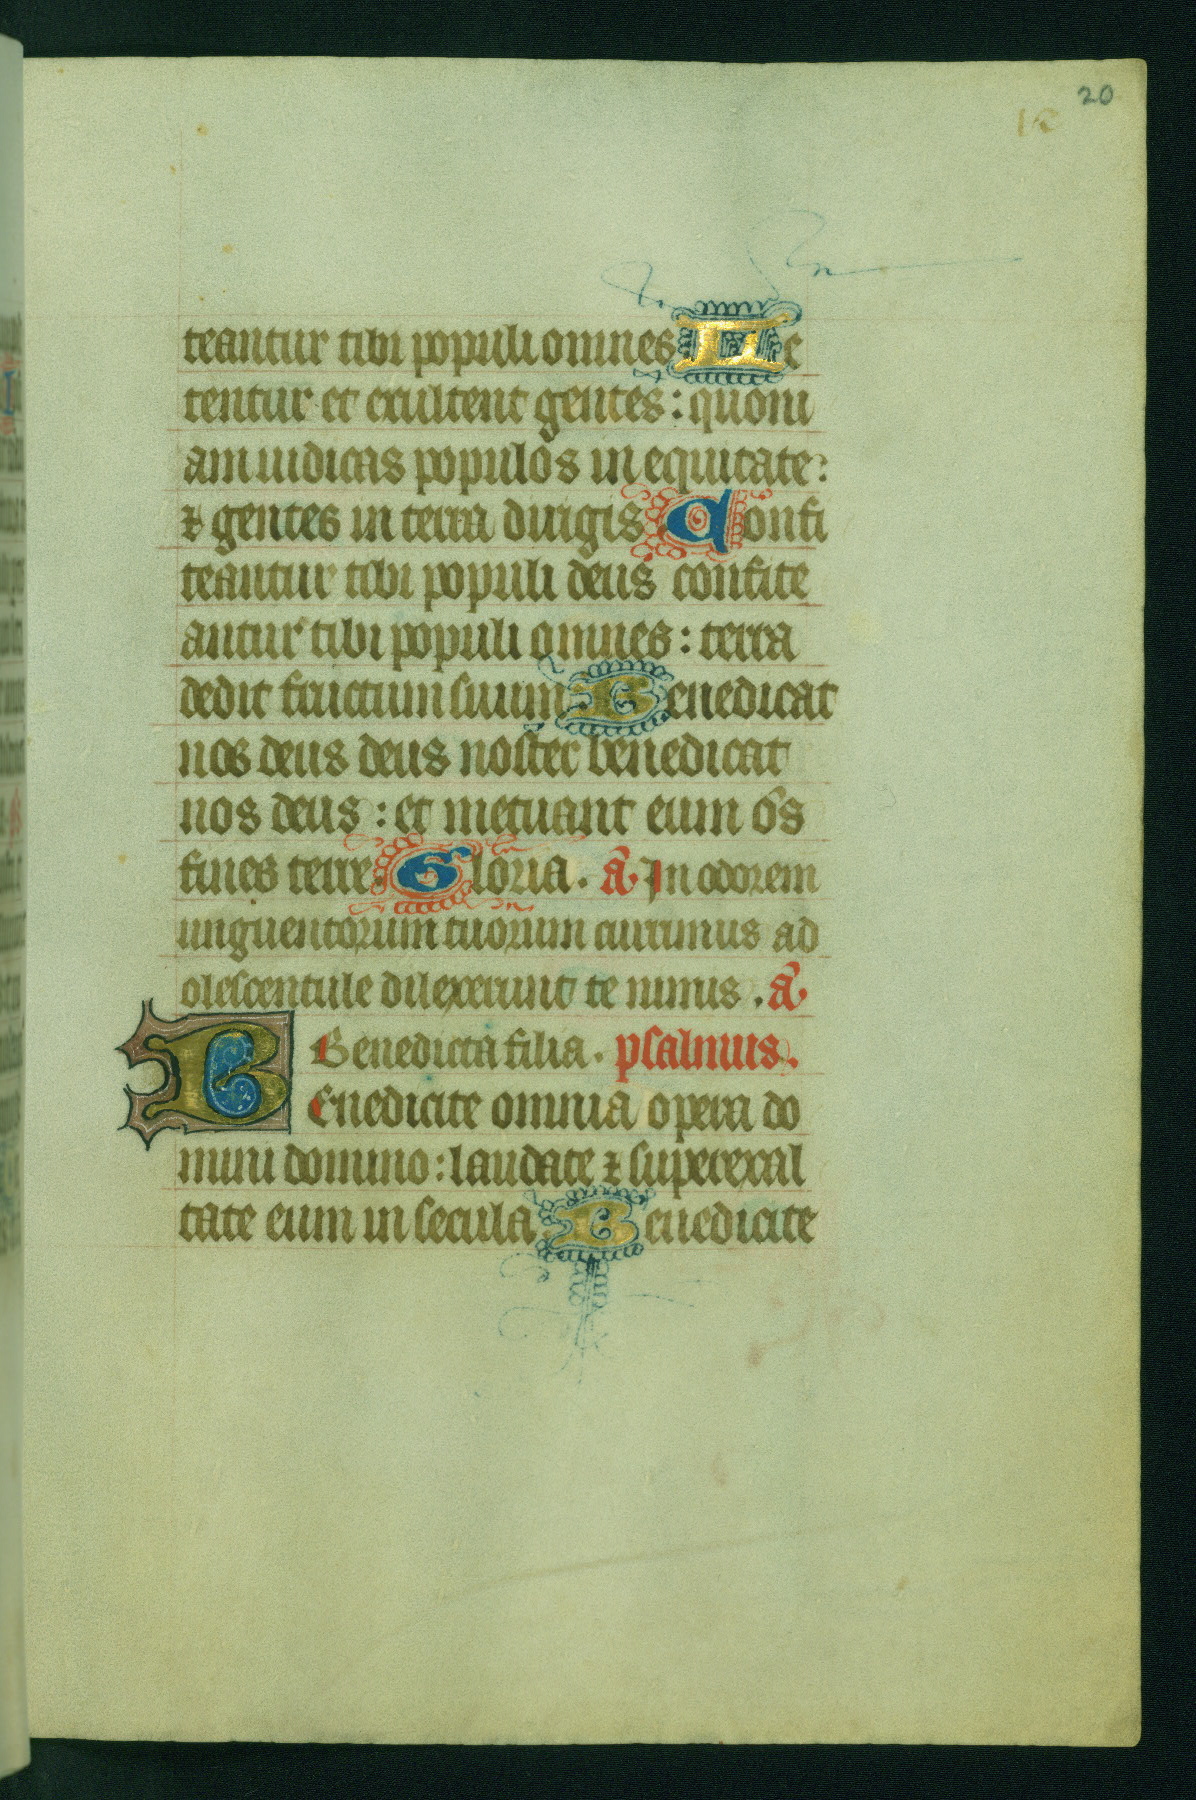 20
teantur tibi populi omnes Le
tentur et exultent gentes : quoni
am iudicas populos in equitate :
⁊ gentes in terra dirigis Confi
teantur tibi populi deus confite
antur tibi populi omnes : terra
dedit fructum suum Benedicat
nos deus deus noster benedicat
nos deus : et metuant eum o̅s
fines terre. Gloria . A̅. In odorem
unguentorum tuorum currimus ad
olescentule dilexerunt te nimis . A̅.
Benedicta filia . psalmus.
Benedicite omnia opera do
mini domino : laudate ⁊ superexal
tate eum in secula. Benedicite